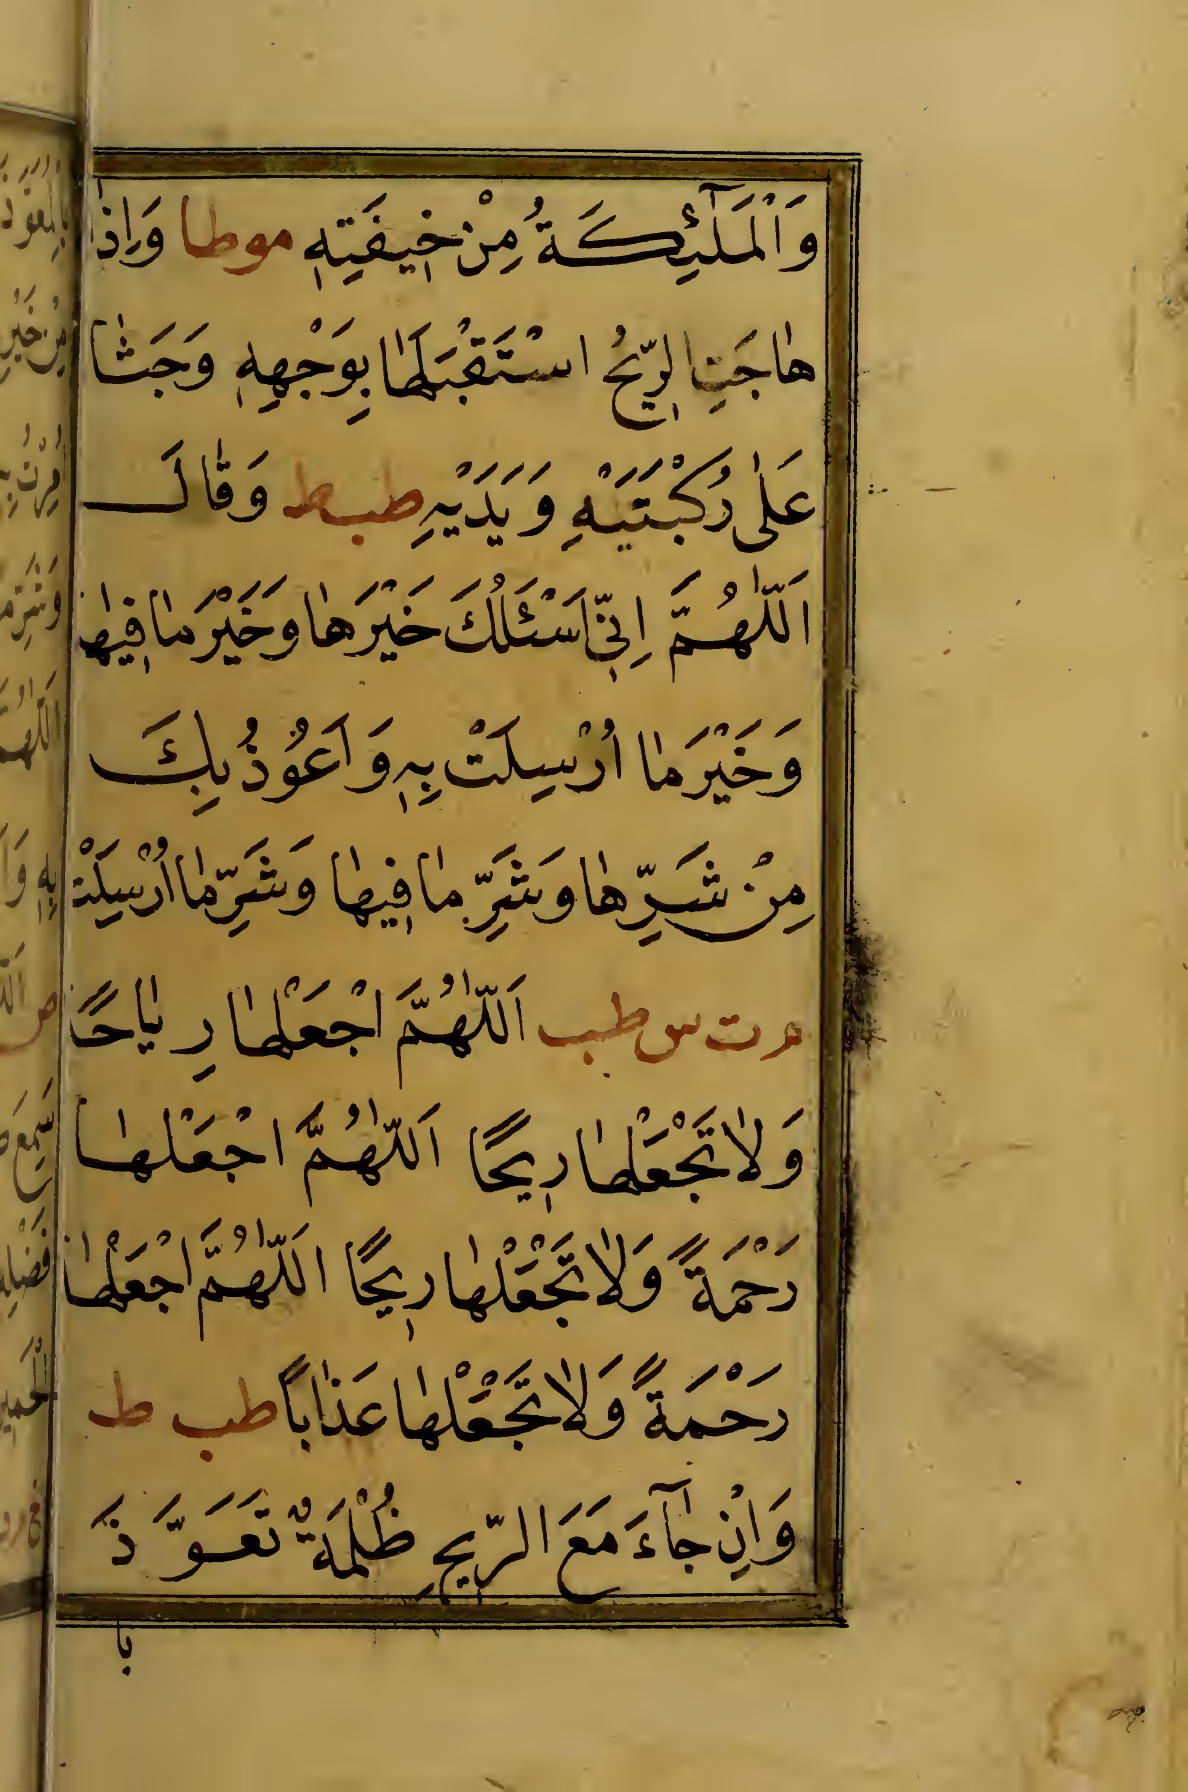 وَالْمَلٰٓئِكَةُ مِنْ خِيفَتِهِ موطا وَاِذَا
هَاجَتِ الرِّيحُ اسْتَقْبَلَهَا بِوَجْهِهِ وَجَثَا
عَلٰى رُكْبَتَيْهِ وَيَدَيْهِ طب ط وَقَالَ
اَللّٰهُمَّ اِنِّي اَسْئَلُكَ خَيْرَهَا وَخَيْرَ مَا فِيهَا
وَخَيْرَ مَا اُرْسِلَتْ بِهِ وَاَعُوْذُ بِكَ
مِنْ شَرِّهَا وَشَرِّ مَا فِيهَا وَشَرِّ مَا اُرْسِلَتْ
م ت س طب اَللّٰهُمَّ اجْعَلْهَا رِيَاحًا
وَلَا تَجْعَلْهَا رِيحًا اَللّٰهُمَّ اجْعَلْهَا
رَحْمَةً وَلَا تَجْعَلْهَا رِيحًا اَللّٰهُمَّ اجْعَلْهَا
رَحْمَةً وَلَا تَجْعَلْهَا عَذَابًا طب ط
وَاِنْ جَآءَ مَعَ الرِّيحِ ظُلْمَةٌ تَعَوَّذَ
با